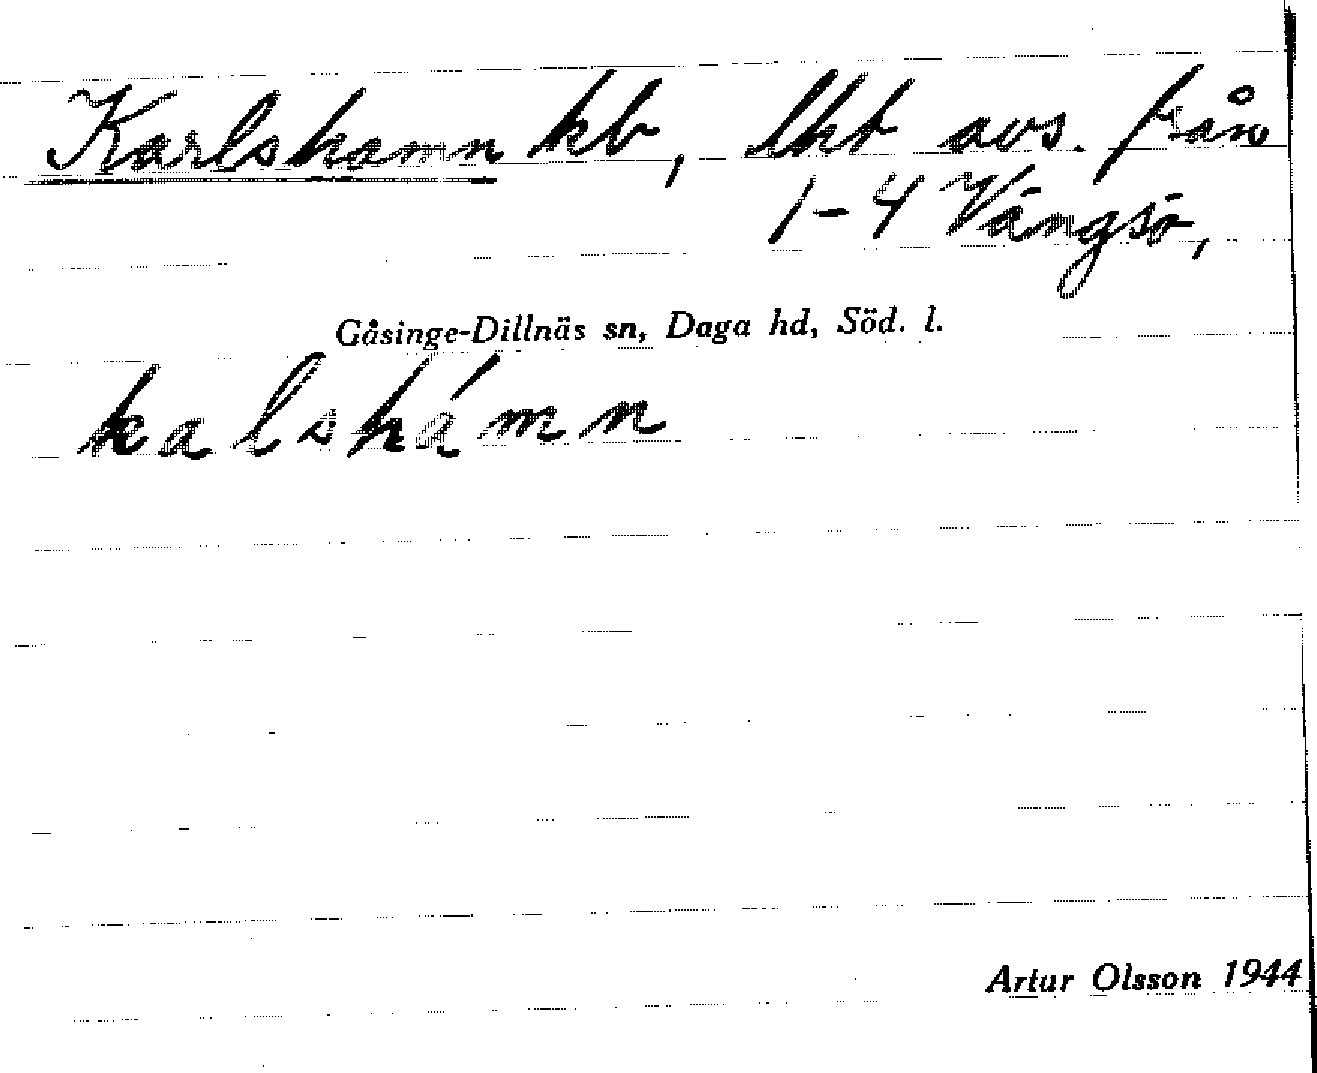 Karlshamn hb, lht avs. från
1-4 Vängsö,
Gåsinge-Dillnäs sn, Daga hd, Söd. l.
kalshámn
Artur Olsson 1944